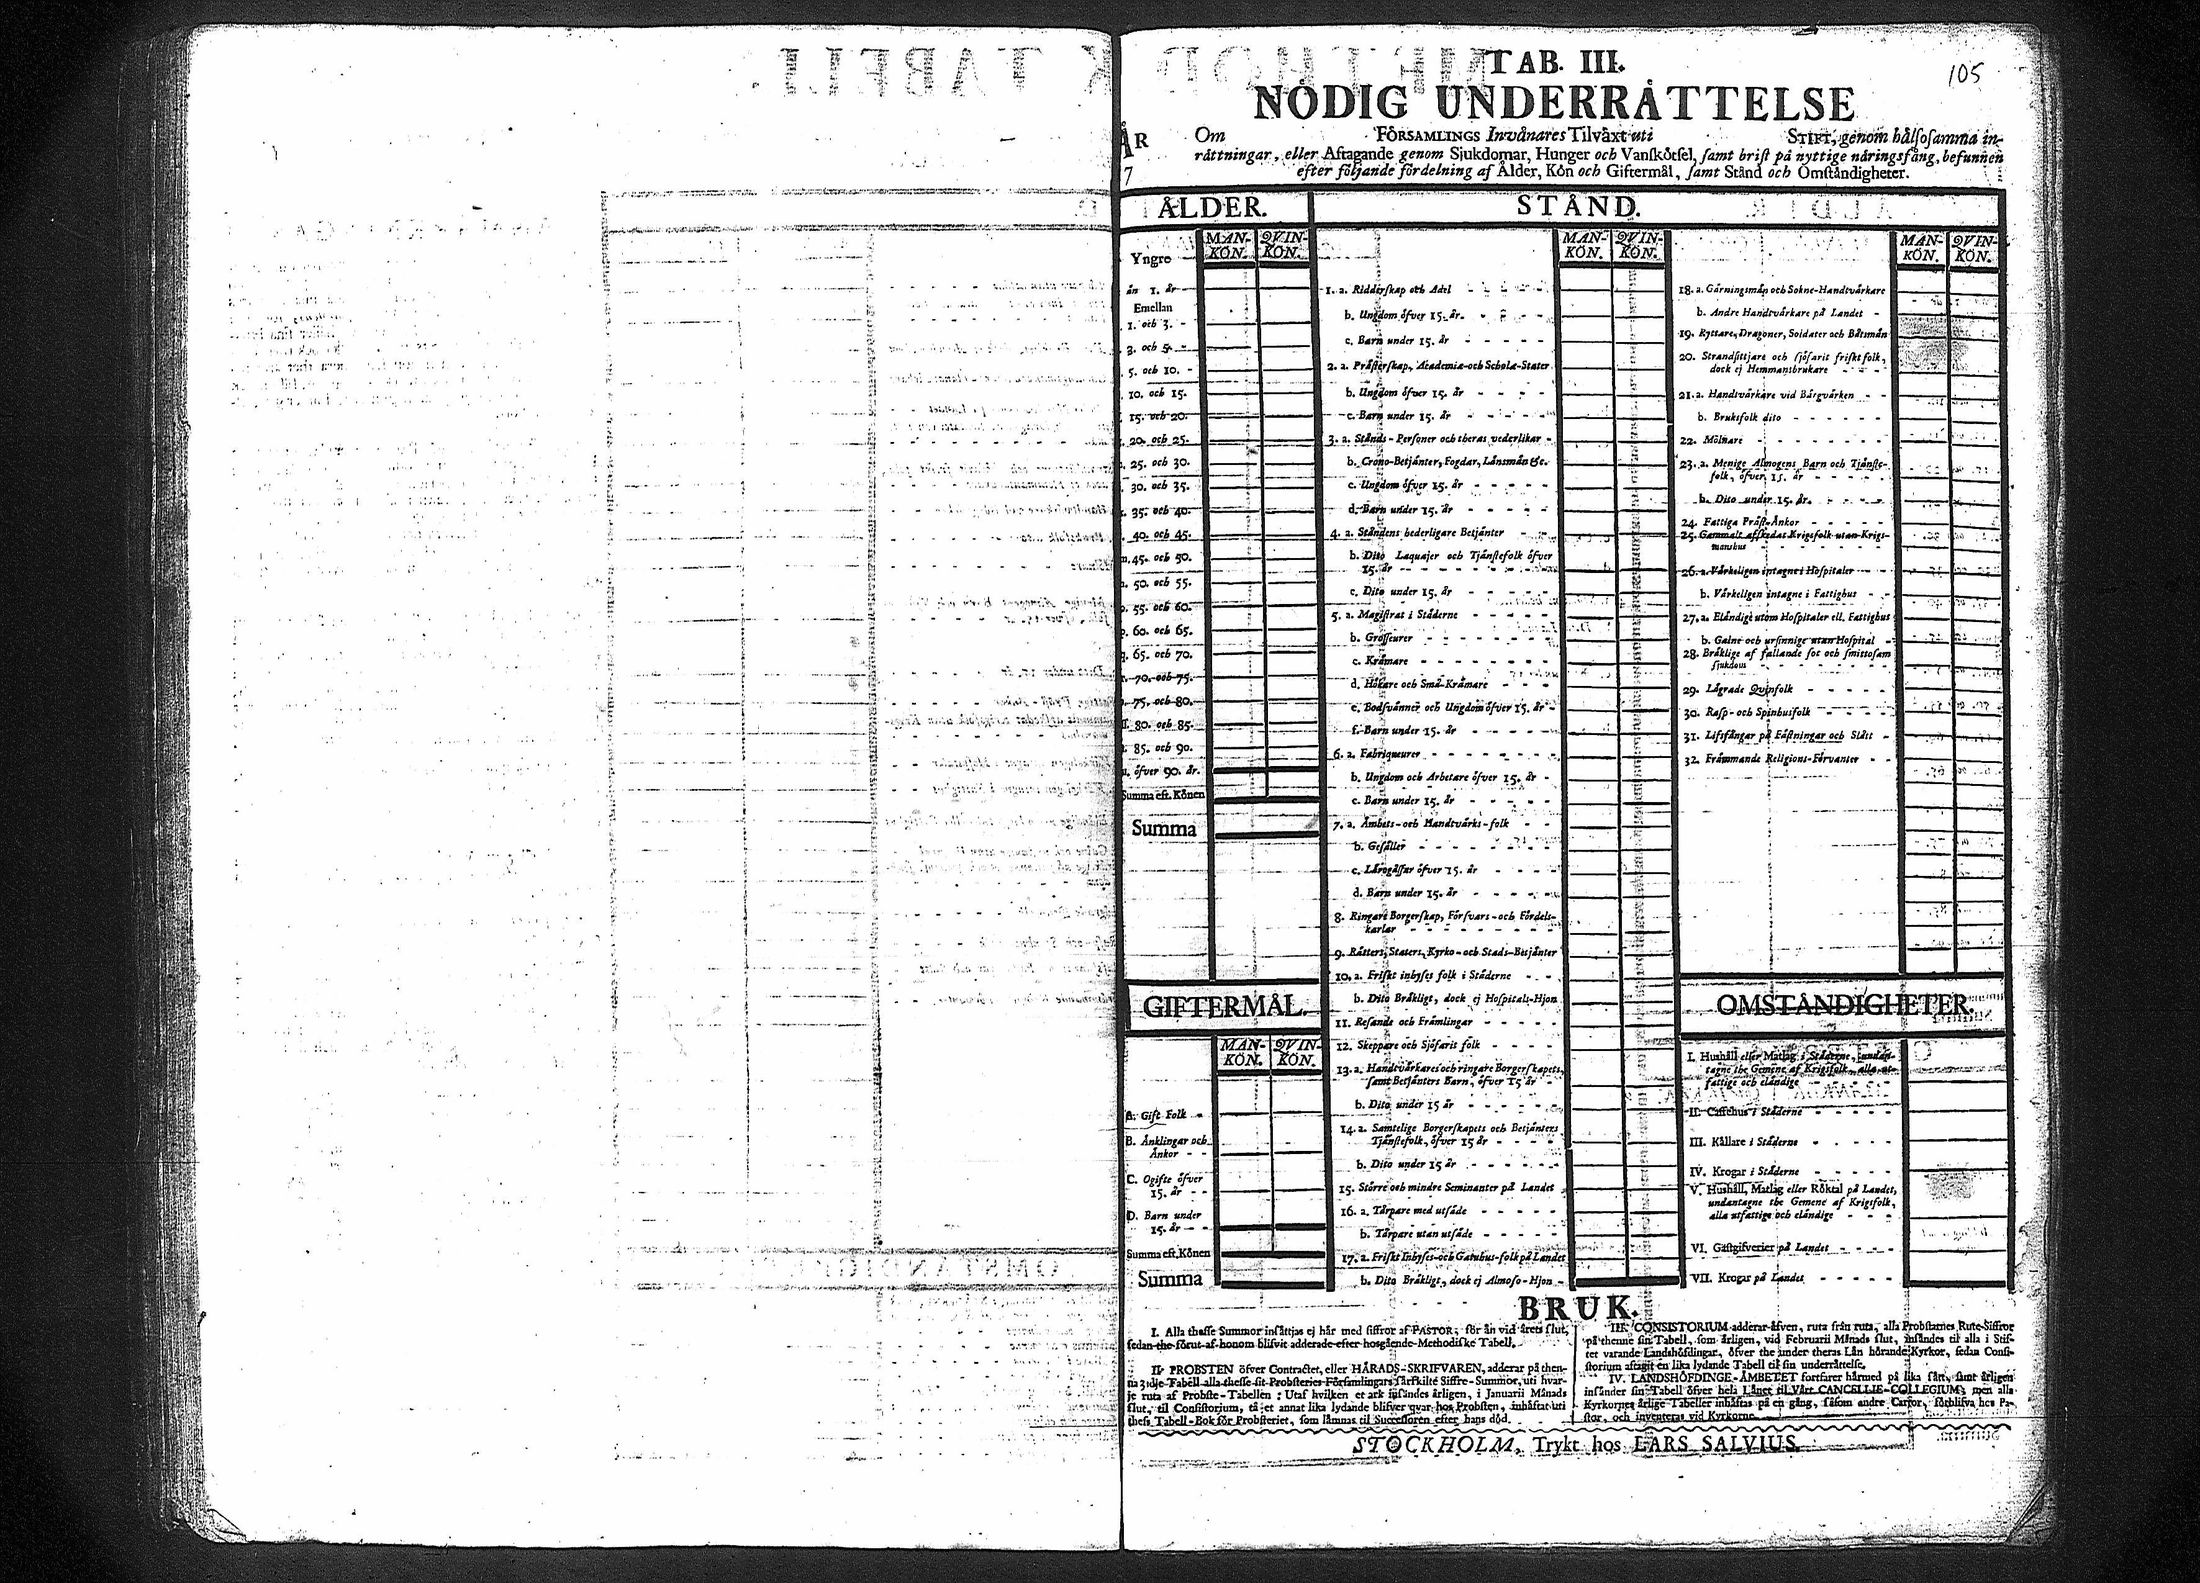 105
TAB. III.
NÖDIG UNDERRÅTTELSE
ÅR
7
Om FÖRSAMLINGS Invånares Tilvåxt uti STIFT, genom hålsosamma in-
råttningar, eller Aftagande genom Sjukdomar, Hunger och Vanskötsel, samt brist på nyttige nåringsfång, befunnen
efter följande fördelning af Ålder, Kön och Giftermål, samt Stånd och Omståndigheter.
ÅLDER.
MAN-KÖN. QVIN-KÖN.
Yngre
än 1. år
Emellan
1. och 3.
3. och 5.
5. och 10.
10. och 15.
15. och 20.
20. och 25.
25. och 30.
30. och 35.
35. och 40.
40. och 45.
45. och 50.
50. och 55.
55. och 60.
60. och 65.
65. och 70.
70. och 75.
75. och 80.
80. och 85.
85. och 90.
öfver 90. år.
Summa eft. Könen
Summa
GIFTERMÅL.
MAN-KÖN. QVIN-KÖN.
A. Gift Folk
B. Änklingar och
Änkor
C. Ogifte öfver
15. år
D. Barn under
15. år
Summa eft. Könen
Summa
STÅND.
MAN-KÖN. QVIN-KÖN.
1. a. Ridderskap och Adel
b. Ungdom öfver 15. år.
c. Barn under 15. år
2. a. Pråsterskap, Academiæ-och Scholæ-Stater
b. Ungdom öfver 15. år
c. Barn under 15. år
3. a. Stånds-Personer och theras vederlikar
b. Crono-Betjånter, Fogdar, Lånsmån &c.
c. Ungdom öfver 15. år
d. Barn under 15. år
4. a. Ståndens hederligare Betjånter
b. Dito Laquajer och Tjånstefolk öfver
15. år
c. Dito under 15. år
5. a. Magistrat i Ståderne
b. Grosseurer
c. Kråmare
d. Hökare och Små-Kråmare
e. Bodsvänner och Ungdom öfver 15. år
f. Barn under 15. år
6. a. Fabriqueurer
b. Ungdom och Arbetare öfver 15. år
c. Barn under 15. år
7. a. Åmbets-och Handtvårks-folk
b. Gesåller
c. Lårogåssar öfver 15. år
d. Barn under 15. år
8. Ringare Borgerskap, Försvars-och Fördels-
karlar
9. Råtters, Staters, Kyrko-och Stads-Betjånter
10. a. Friskt inhyses folk i Ståderne
b. Dito Bråkligt, dock ej Hospitals-Hjon
11. Resande och Främlingar
12. Skeppare och Sjöfarit folk
13. a. Handtvårkares och ringare Borgerskapets,
samt Betjånters Barn, öfver 15 år
b. Dito under 15 år
14. a. Samtelige Borgerskapets och Betjånters
Tjånstefolk, öfver 15 år
b. Dito under 15 år
15. Större och mindre Seminanter på Landet
16. a. Tårpare med utsåde
b. Tårpare utan utsåde
17. a. Friskt Inhyses-och Gatuhus-folk på Landet
b. Dito Bråkligt, dock ej Almoso-Hjon
MAN-KÖN. QVIN-KÖN.
18. a. Gårningsmån och Sokne-Handtvårkare
b. Andre Handtvårkare på Landet
19. Ryttare, Dragoner, Soldater och Båtsmån
20. Strandsittjare och sjöfarit friskt folk,
dock ej Hemmansbrukare
21. a. Handtvårkare vid Bårgvårken
b. Bruksfolk dito
22. Mölnare
23. a. Menige Almogens Barn och Tjånste-
folk, öfver 15. år
b. Dito under 15. år.
24. Fattiga Pråst-Änkor
25. Gammalt afskedat Krigsfolk utan Krigs-
manshus
26. a. Vårkeligen intagne i Hospitaler
b. Vårkeligen intagne i Fattighus
27. a. Elåndige utom Hospitaler ell. Fattighus
b. Galne och ursinnige utan Hospital
28. Bråklige af fallande sot och smittosam
sjukdom
29. Lågrade Qvinfolk
30. Rasp-och Spinhusfolk
31. Lifsfångar på Fåstningar och Slått
32. Fråmmande Religions-Förvanter
OMSTÅNDIGHETER.
I. Hushåll eller Matlag i Ståderne, undan-
tagne the Gemene af Krigsfolk, alla ut-
fattige och elåndige
II. Caffehus i Ståderne
III. Kållare i Ståderne
IV. Krogar i Ståderne
V. Hushåll, Matlag eller Röktal på Landet,
undantagne the Gemene af Krigsfolk,
alla utfattige och elåndige
VI. Gåstgifverier på Landet
VII. Krogar på Landet
BRUK.
I. Alla thesse Summor insåttjas ej hår med siffror af PASTOR, för ån vid årets slut,
sedan the förut af honom blifvit adderade efter hosgående Methodiske Tabell.
II. PROBSTEN öfver Contractet, eller HÅRADS-SKRIFVAREN, adderar på then-
na 3:dje Tabell alla thesse sit Probsteries Församlingars sårskilte Siffre-Summor, uti hvar-
je ruta af Probste-Tabellen; Utaf hvilken et ark insåndes årligen, i Januarii Månads
slut, til Consistorium, tå et annat lika lydande blifver qvar hos Probsten, inhåftat uti
thess Tabell-Bok för Probsteriet, som låmnas til Successoren efter hans död.
III. CONSISTORIUM adderar åfven, ruta från ruta, alla Probstarnes Rute-Siffror
på thenne sin Tabell, som årligen, vid Februarii Månads slut, insåndes til alla i Stif-
tet varande Landshöfdingar, öfver the under theras Lån hörande Kyrkor, sedan Consi-
storium aftagit en lika lydande Tabell til sin underråttelse.
IV. LANDSHÖFDINGE-ÅMBETET fortfarer hårmed på lika sått, samt årligen
insånder sin Tabell öfver hela Lånet til Vårt CANCELLIE-COLLEGIUM; men alla
Kyrkornes årlige Tabeller inhåftas på en gång, såsom andre Cartor, förblifva hos Pa-
stor, och inventeras vid Kyrkorne.
STOCKHOLM, Trykt hos LARS SALVIUS.